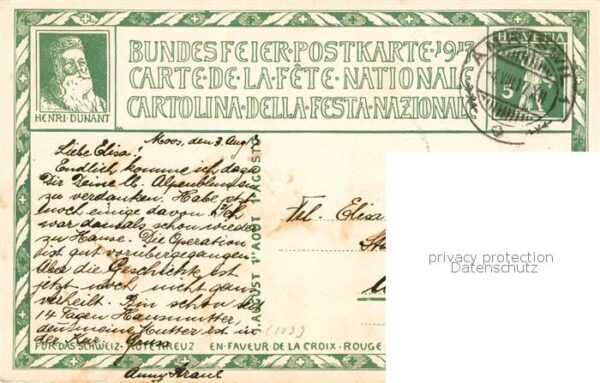 BUNDESFEIER·POSTKARTE·1917
CARTE·DE·LA·FÊTE·NATIONALE
CARTOLINA·DELLA·FESTA·NAZIONALE
HENRI·DUNANT
HELVETIA
5
Moos, den 3. Aug
Liebe Elisa!
Endlich komme ich dazu
Dir Deine lb. Alpenblumen
zu verdanken. Habe jetzt
noch einige davon. Ich
war damals schon wieder
zu Hause. Die Operation
ist gut vorübergegangen.
Aber die Geschichte ist
jetzt noch nicht ganz
verheilt. Bin schon seit
14 Tagen Hausmutter,
denn meine Mutter ist in
der Kur. Gruss
Anny
1. AUGUST 1er AOÛT 1o AGOSTO
Frl. Elisa
privacy protection
Datenschutz
(109)
FÜR·DAS·SCHWEIZ·ROTE·KREUZ EN·FAVEUR DE LA CROIX·ROUGE